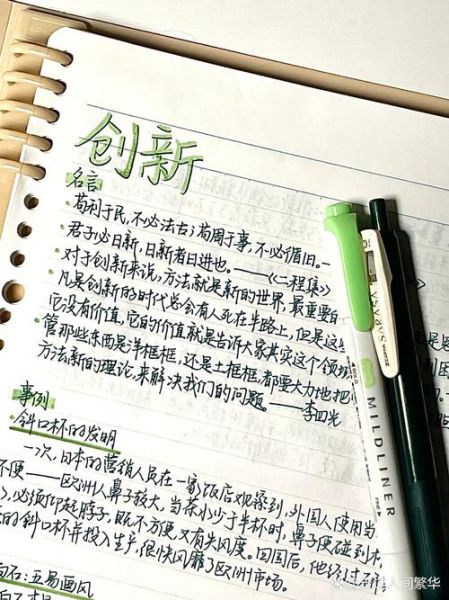 创新
名言
·苟利于民,不必法古;苟周于事,不必循旧。一
·君子必日新,日新者日进也。——《二程集》
·对于创新来说,方法就是新的世界,最重要
凡是创新的时代总会有人死在半路上,但是这
它没有价值,它的价值就是告诉大家其实这个领
管那些东西是洋框框,还是土框框,都要大力地把
方法新的理论,来解决我们的问题。——李四光
事例
·斜口杯的发明
一次,日本的营销人员在一家饭店观察到,外国人使用当
不便——欧洲人鼻子较大,当茶水少于半杯时,鼻子便碰到
,必须仰起脖子,既不方便,又有失风度。回国后,他经过
的斜口杯并投入生产,很快风靡了欧洲市场。
白石:五易画风
MILDLINER
SARASA
ZEBRA
人间繁华